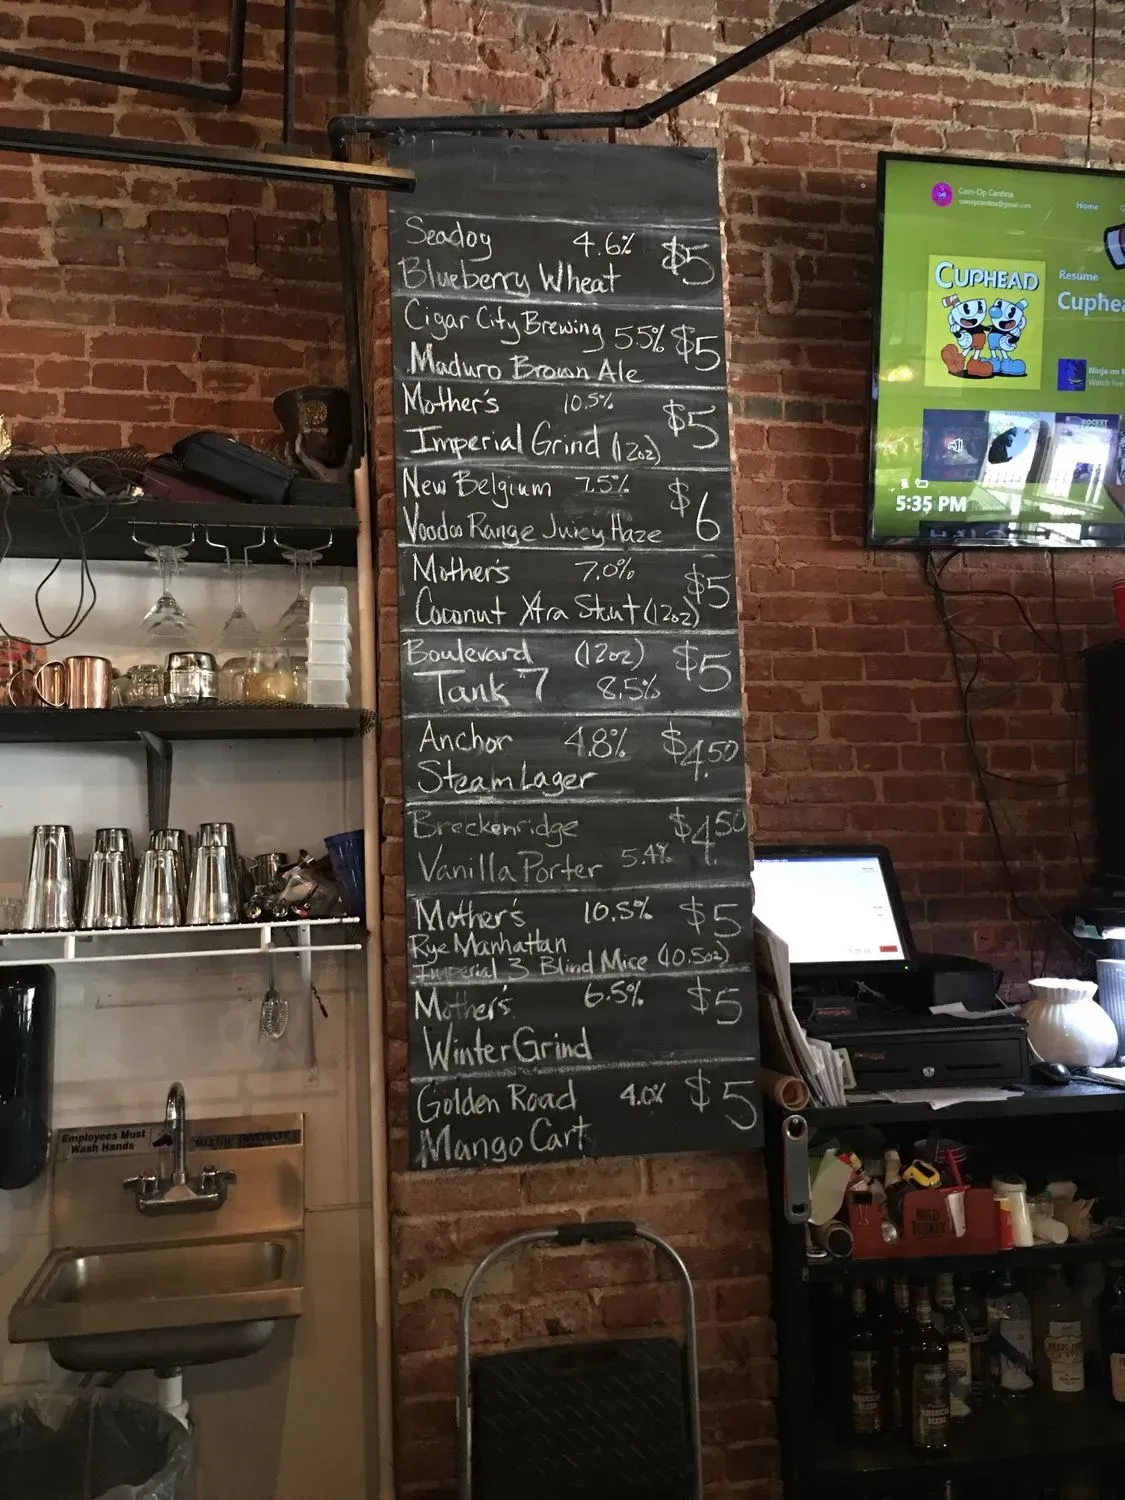 Seadog 4.6% $5
Blueberry Wheat
Cigar City Brewing 5.5% $5
Maduro Brown Ale
Mother's 10.5% $5
Imperial Grind (12oz)
New Belgium 7.5% $6
Voodoo Range Juicy Haze
Mother's 7.0% $5
Coconut Xtra Stout (12oz)
Boulevard (12oz) $5
Tank 7 8.5%
Anchor 4.8% $4.50
Steam Lager
Breckenridge $4.50
Vanilla Porter 5.4%
Mother's 10.5% $5
Rye Manhattan
Imperial 3 Blind Mice (10.5oz)
Mother's 6.5% $5
Winter Grind
Golden Road 4.0% $5
Mango Cart
Coin-Op Cantina
coinopcantina@gmail.com
Home
CUPHEAD
Resume
Cuphea
Ninja on
Watch live
ROCKET
5:35 PM
Employees Must
Wash Hands